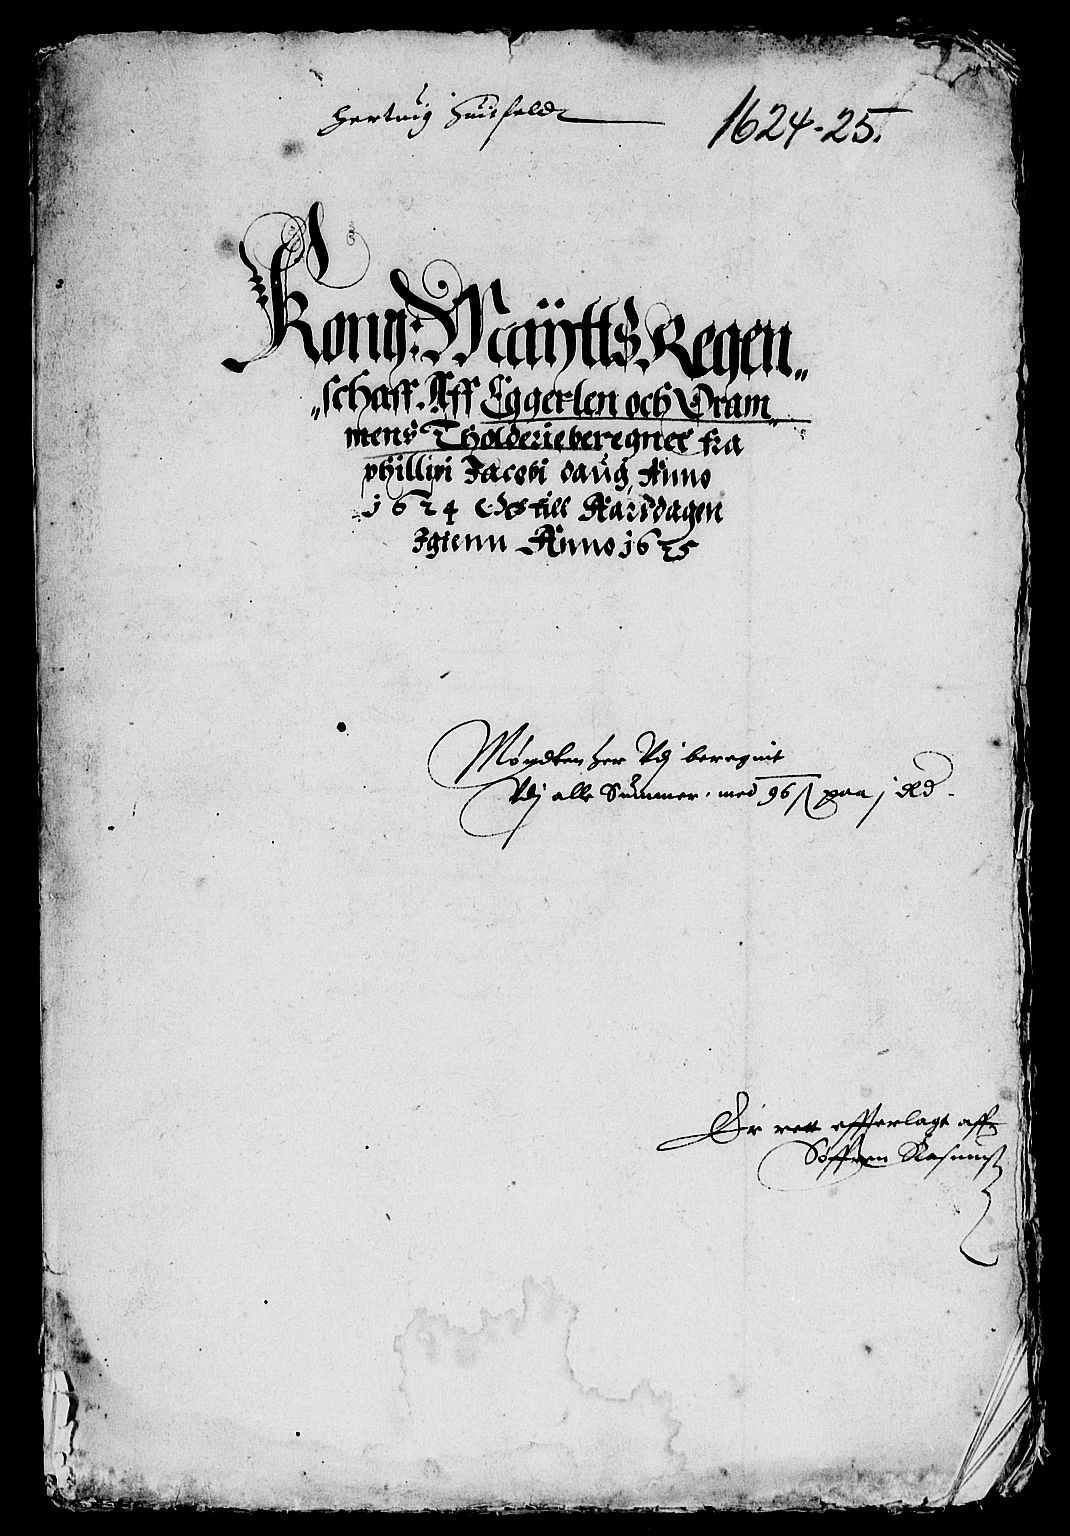 Hertuig Huitfeldt
1624-25.
Kong: Maÿtts Regen„
„schaff. Aff Eggerßen och Dram„
mens Tholderie beregnet fra
phillipi Jacobi daug, Anno
1624 Och till Aarsdagen
Igienn Anno 1625
Møndten her Vdj beregnit
Vdj alle Summer. med 96 ß paa j dld.
Er rett effterlagt aff
Søffren Rasmuß